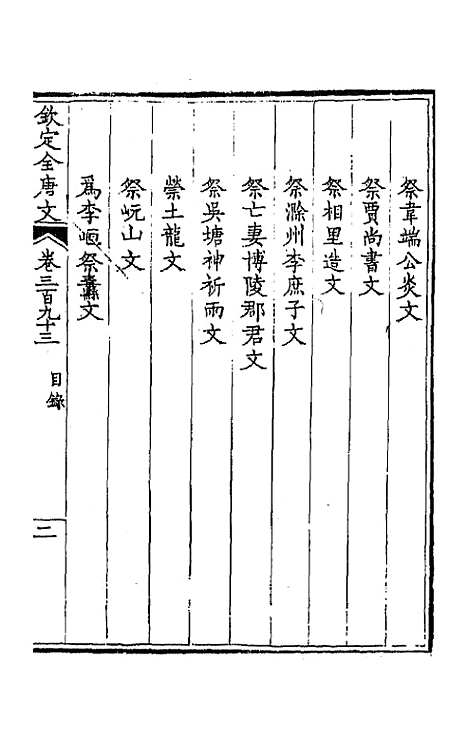 祭韋端公炎文
祭賈尚書文
祭相里造文
祭滁州李庶子文
祭亡妻博陵郡君文
祭吳塘神祈雨文
禜土龍文
祭岏山文
爲李𡷗祭纛文
欽定全唐文 卷三百九十三 目錄 二